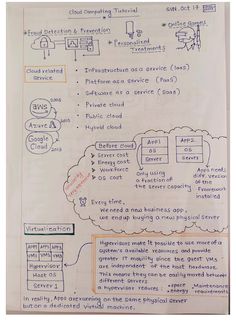 Cloud Computing Tutorial
SUN, Oct 17
Fraud Detection & Prevention
Online Games
Personalized
Treatments
Cloud related
Service
Infrastructure as a service (IaaS)
Platform as a service (PaaS)
Software as a service (SaaS)
Private cloud
Public cloud
Hybrid cloud
aws
Azure
Google
Cloud
Before Cloud
Server cost
Energy cost
Workforce
OS cost
App1
OS
Server
App2
OS
Server
Only using
a fraction of
the server capacity
Apps
needs
diff. version
of the
Framework
installed
Every time,
We need a new business app,
we end up buying a new physical server
Virtualization
App1 App2 App3
VM1 VM2 VM3
Hypervisor
Host OS
Server 1
Hypervisors make it possible to use more of a
system's available resources and provide
greater IT mobility since the guest VMs
are independent of the host hardware.
This means they can be easily moved between
different servers
a hypervisor reduces: space Maintenance
energy requirements
In reality, Apps are running on the same physical server
but on a dedicated virtual machine.